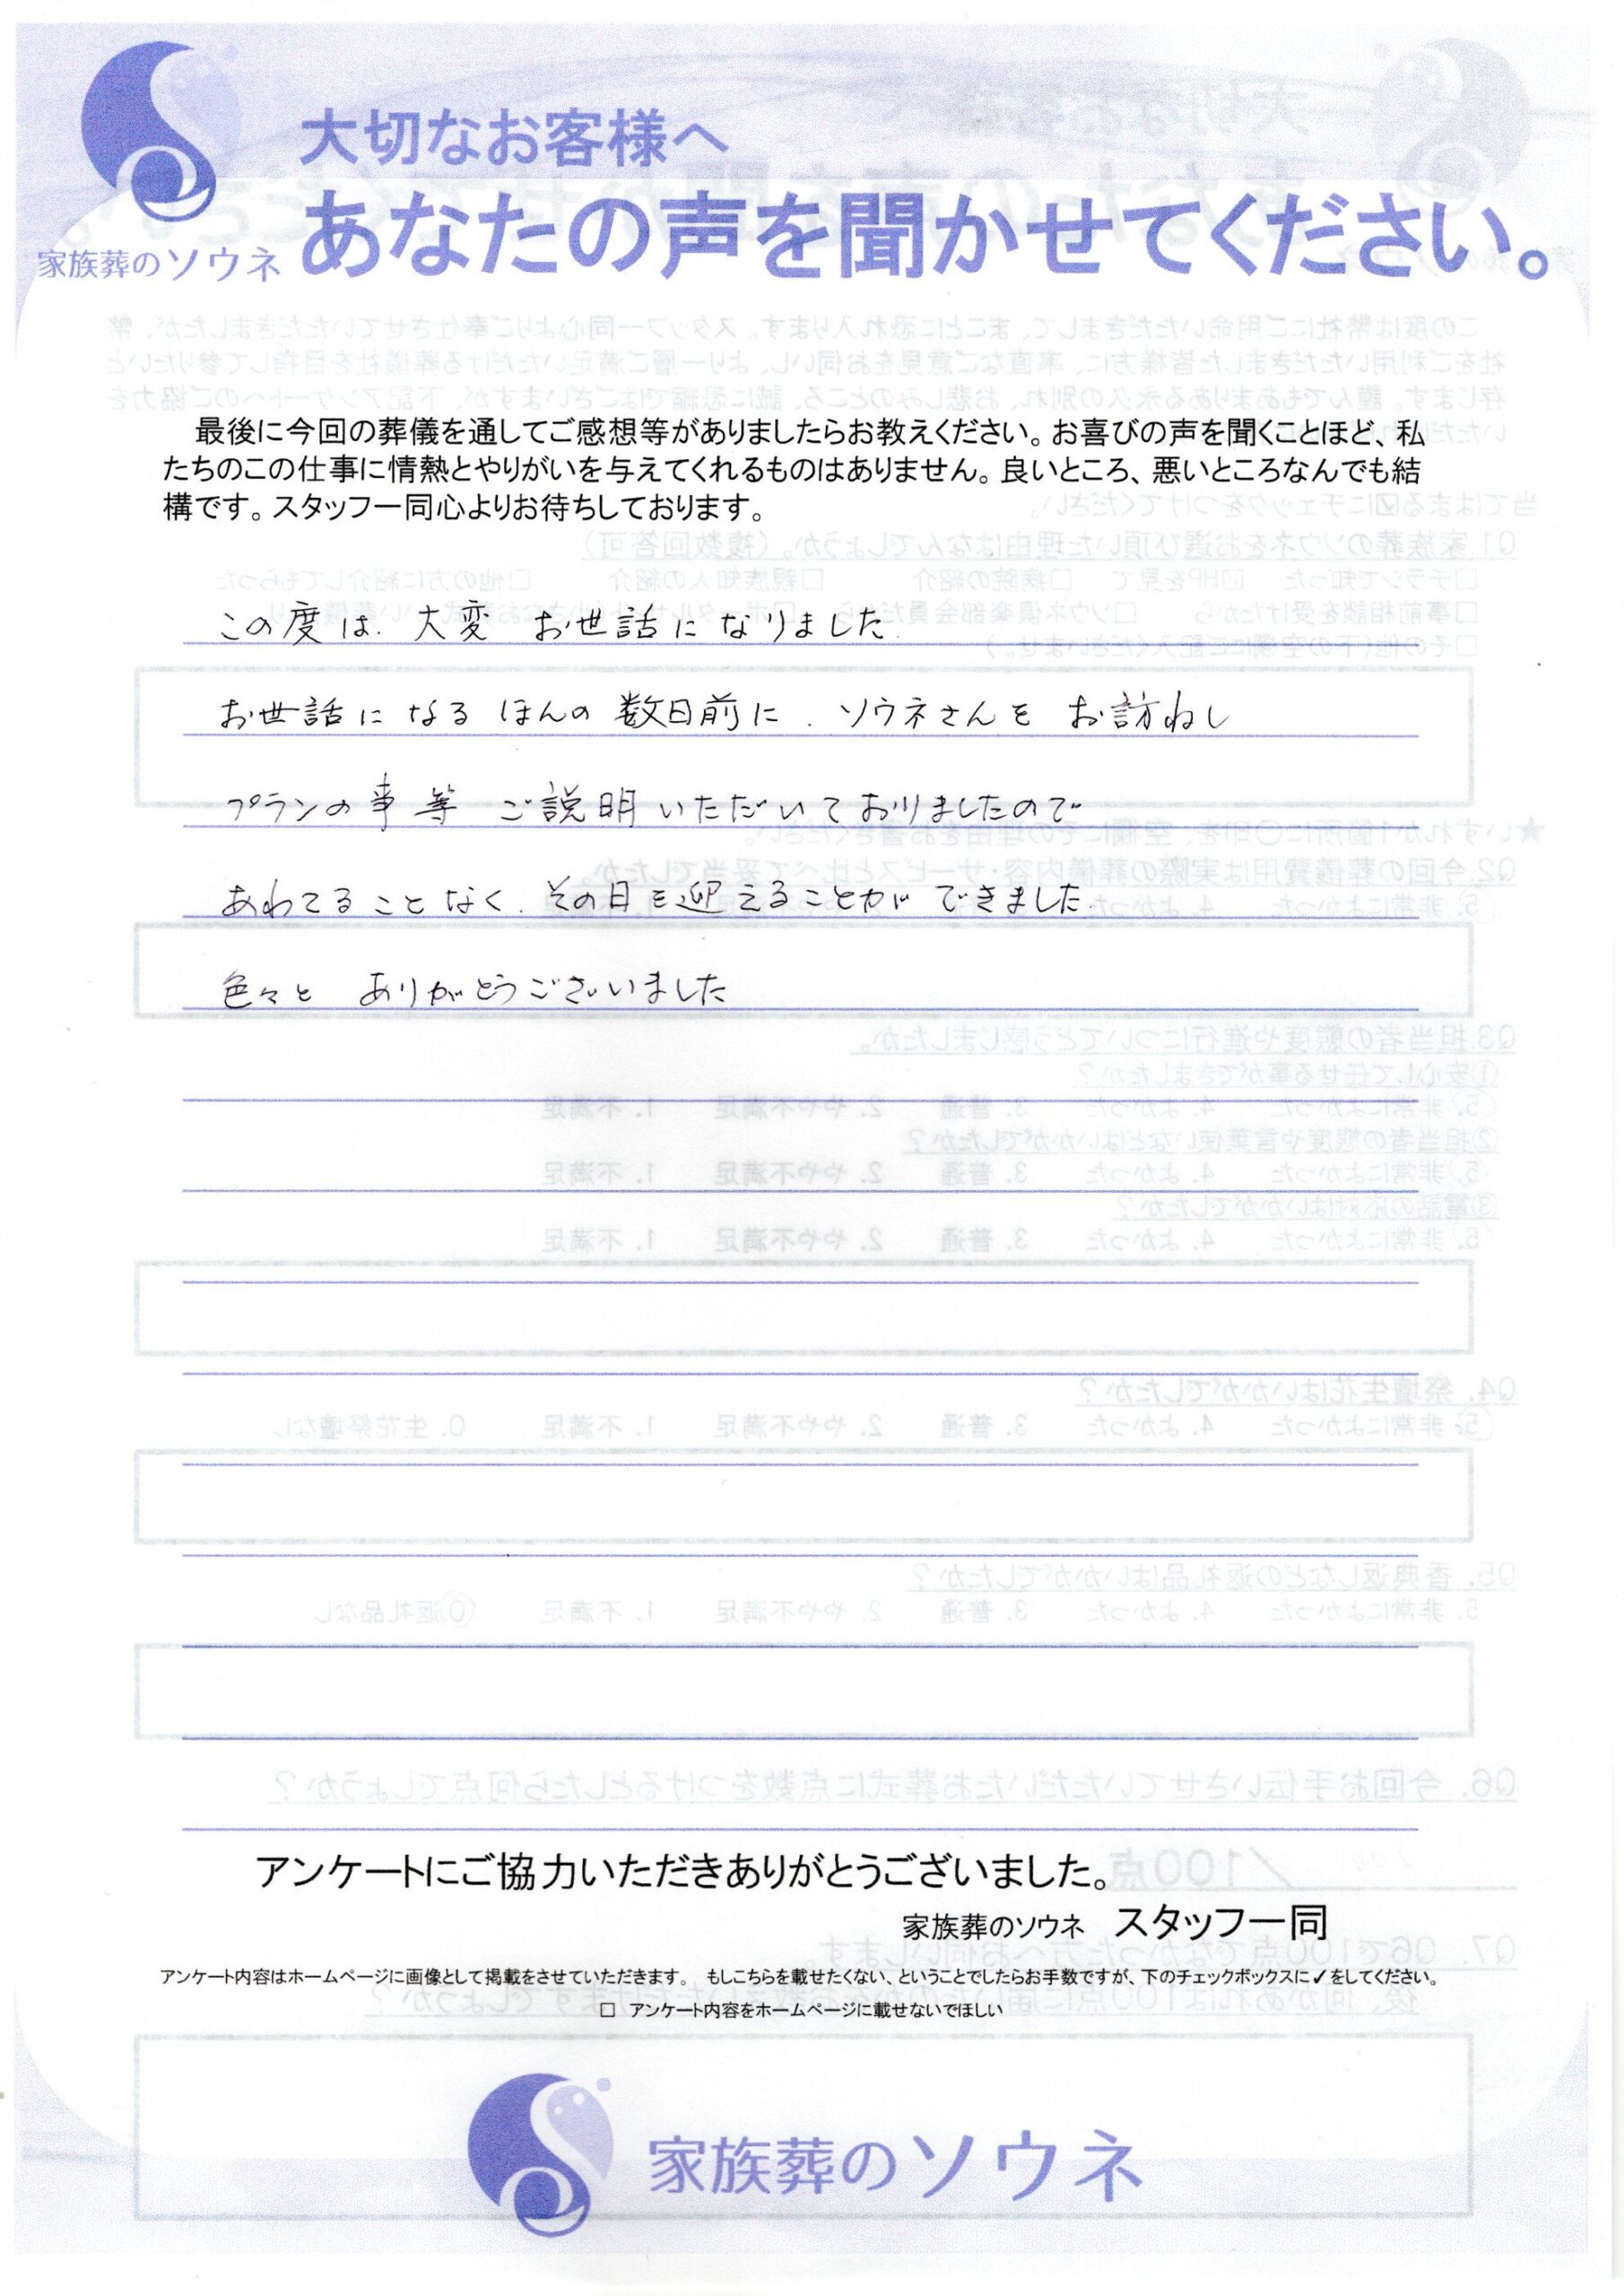 大切なお客様へ
家族葬のソウネ
あなたの声を聞かせてください。
最後に今回の葬儀を通してご感想等がありましたらお教えください。お喜びの声を聞くことほど、私
たちのこの仕事に情熱とやりがいを与えてくれるものはありません。良いところ、悪いところなんでも結
構です。スタッフ一同心よりお待ちしております。
この度は、大変 お世話になりました
お世話になる ほんの 数日前に、ソウネさんを お訪ねし
プランの事等 ご説明いただいておりましたので
あわてることなく、その日を迎えることが できました
色々と ありがとうございました
アンケートにご協力いただきありがとうございました。
家族葬のソウネ スタッフ一同
アンケート内容はホームページに画像として掲載をさせていただきます。 もしこちらを載せたくない、ということでしたらお手数ですが、下のチェックボックスに✓をしてください。
□ アンケート内容をホームページに載せないでほしい
家族葬のソウネ